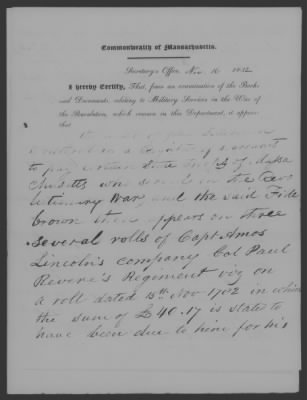 Commonwealth of Massachusetts.
Secretary's Office, Nov 16 1832
I hereby Certify, That, from an examination of the Books
and Documents, relating to Military Services in the War of
the Revolution, which remain in this Department, it appears
that
the name of
contained in a of accounts
to pay certain State of Massa
chusetts who served in the Revo
lutionary War and the said
Brown then appears on three
Several rolls of Capt Amos
Lincoln's company Col Paul
Revere's Regiment viz on
a roll dated 15th Nov in which
the sum of £40.17 is stated to
have been due to him for his